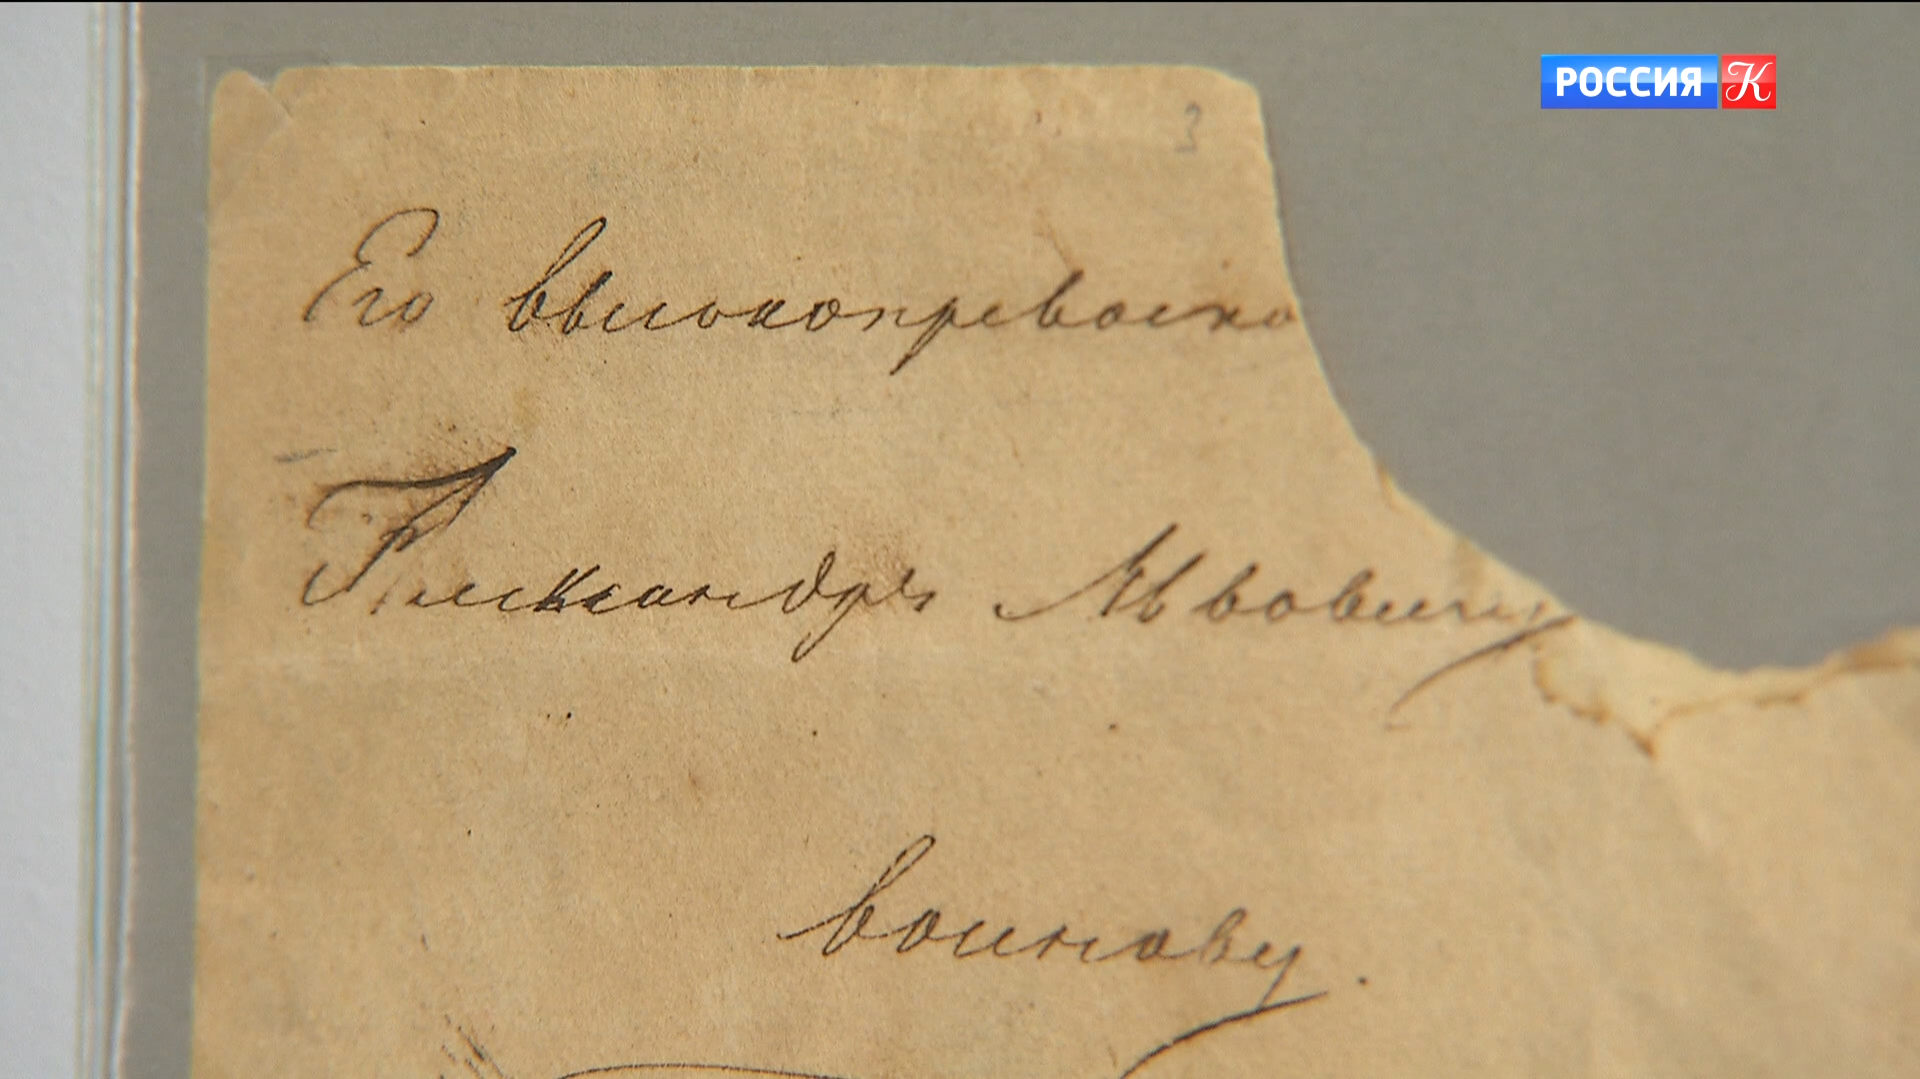 РОССИЯ К
3
Его высокопревосхо
Александру Львовичу
Воинову.